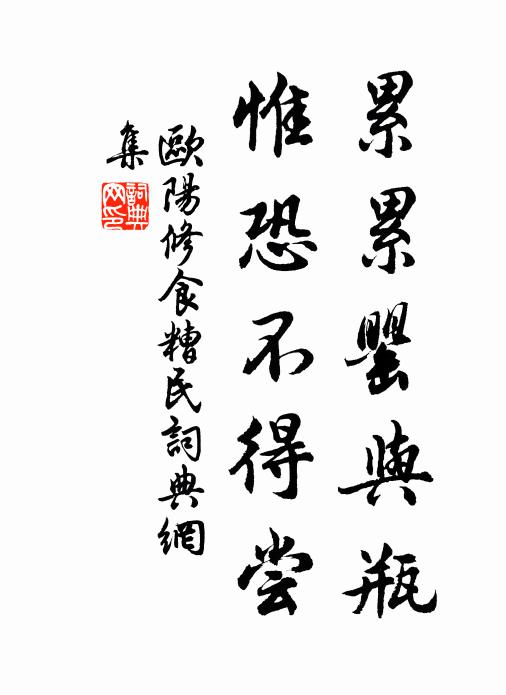 累累罌與瓶
惟恐不得尝
歐陽修食糟民詞典網
集
詞典
网印